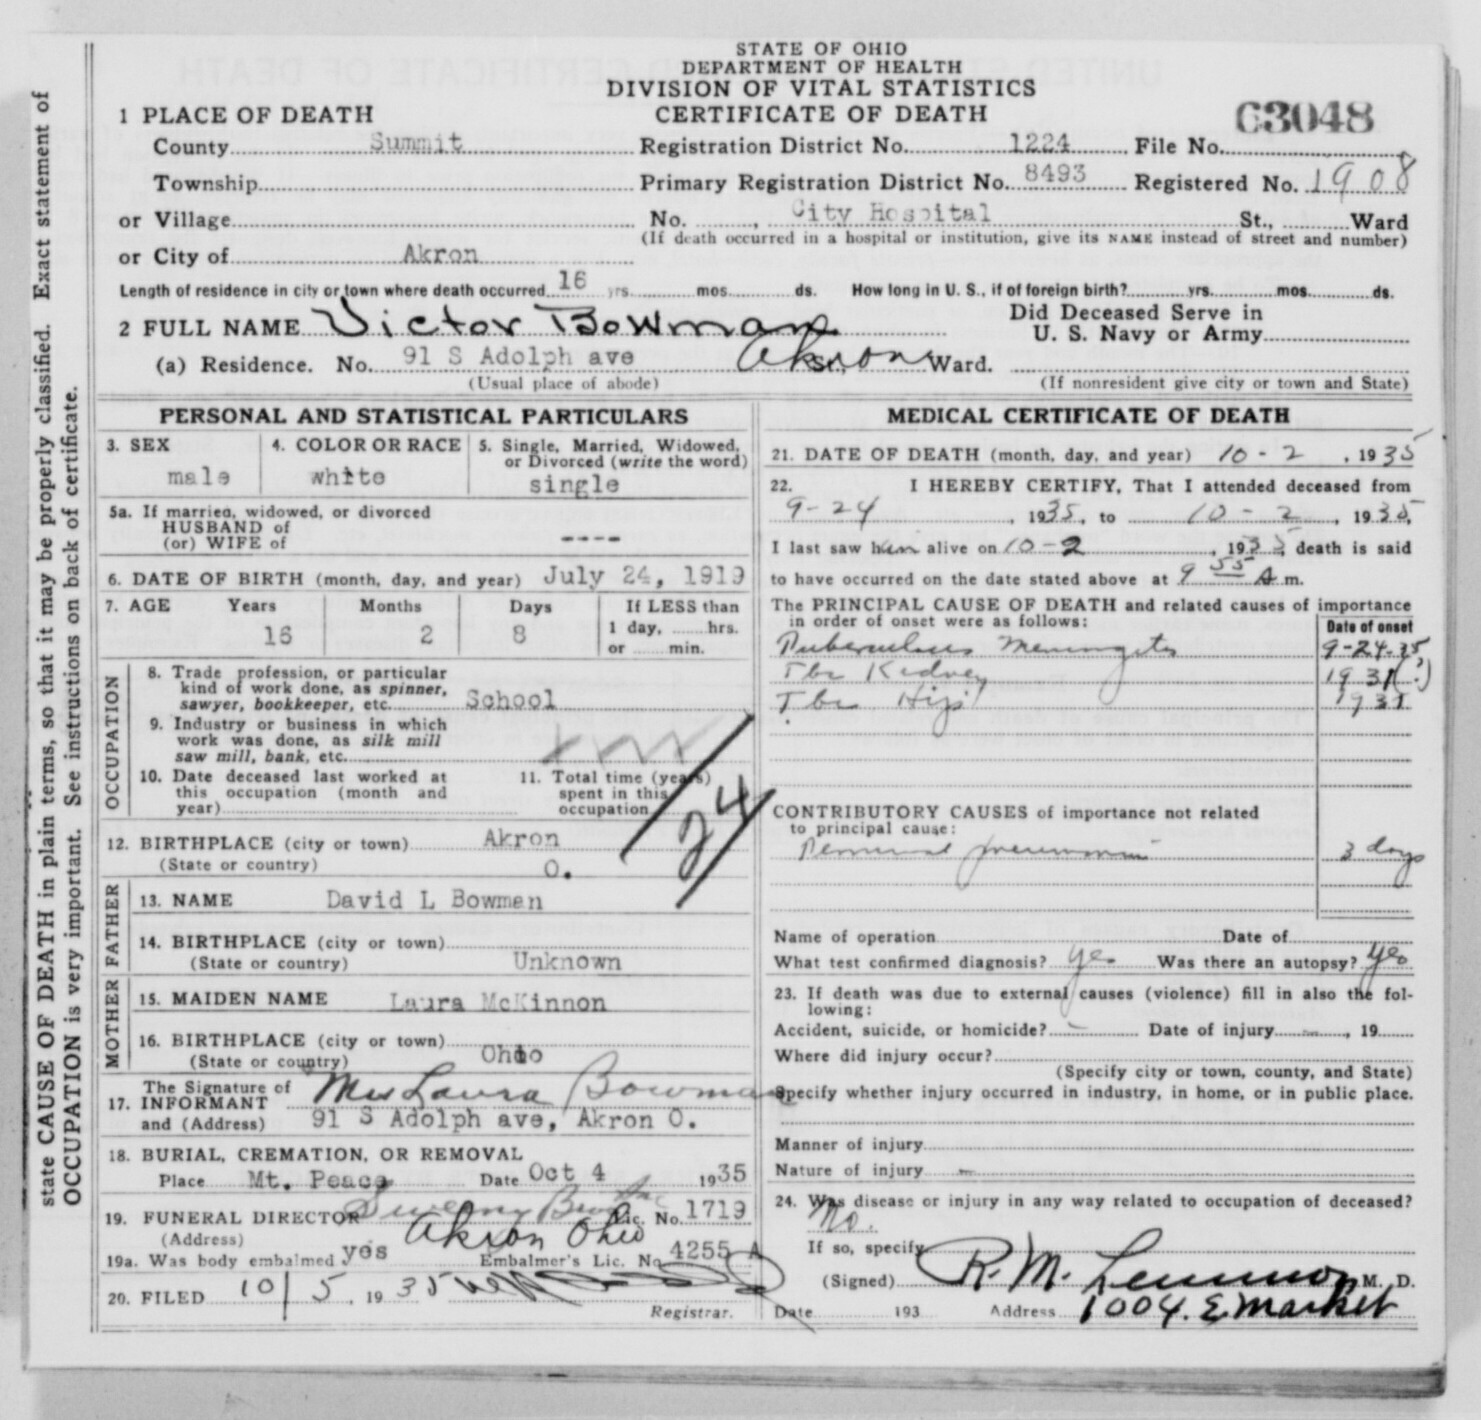 STATE OF OHIO
DEPARTMENT OF HEALTH
DIVISION OF VITAL STATISTICS
CERTIFICATE OF DEATH
63048
1 PLACE OF DEATH
County Summit Registration District No. 1224 File No.
Township Primary Registration District No. 8493 Registered No. 1908
or Village No. , City Hospital St., Ward
(If death occurred in a hospital or institution, give its NAME instead of street and number)
or City of Akron
Length of residence in city or town where death occurred 16 yrs. mos. ds. How long in U. S., if of foreign birth? yrs. mos. ds.
2 FULL NAME Victor Bowman Did Deceased Serve in U. S. Navy or Army
(a) Residence. No. 91 S Adolph ave Akron St., Ward.
(Usual place of abode) (If nonresident give city or town and State)
PERSONAL AND STATISTICAL PARTICULARS
3. SEX male
4. COLOR OR RACE white
5. Single, Married, Widowed, or Divorced (write the word) single
5a. If married, widowed, or divorced
HUSBAND of
(or) WIFE of ----
6. DATE OF BIRTH (month, day, and year) July 24, 1919
7. AGE Years Months Days If LESS than
16 2 8 1 day, hrs.
or min.
OCCUPATION
8. Trade profession, or particular
kind of work done, as spinner,
sawyer, bookkeeper, etc. School
9. Industry or business in which
work was done, as silk mill
saw mill, bank, etc.
10. Date deceased last worked at
this occupation (month and
year)
11. Total time (years)
spent in this
occupation
24
12. BIRTHPLACE (city or town) Akron
(State or country) O.
FATHER
13. NAME David L Bowman
14. BIRTHPLACE (city or town)
(State or country) Unknown
MOTHER
15. MAIDEN NAME Laura McKinnon
16. BIRTHPLACE (city or town)
(State or country) Ohio
17. The Signature of
INFORMANT Mrs Laura Bowman
and (Address) 91 S Adolph ave, Akron O.
18. BURIAL, CREMATION, OR REMOVAL
Place Mt. Peace Date Oct 4 1935
19. FUNERAL DIRECTOR Lic. No. 1719
(Address) Akron Ohio
19a. Was body embalmed yes Embalmer's Lic. No. 4255 A
20. FILED 10/5, 1935
Registrar.
MEDICAL CERTIFICATE OF DEATH
21. DATE OF DEATH (month, day, and year) 10-2, 1935
22. I HEREBY CERTIFY, That I attended deceased from
9-24, 1935, to 10-2, 1935,
I last saw him alive on 10-2, 1935, death is said
to have occurred on the date stated above at 9 55 A m.
The PRINCIPAL CAUSE OF DEATH and related causes of importance
in order of onset were as follows: Date of onset
Tuberculous Meningitis 9-24-35
Tbc Kidney 1931(?)
Tbc Hip 1931
CONTRIBUTORY CAUSES of importance not related
to principal cause:
Terminal pneumonia 3 days
Name of operation Date of
What test confirmed diagnosis? yes Was there an autopsy? yes
23. If death was due to external causes (violence) fill in also the fol-
lowing:
Accident, suicide, or homicide? - Date of injury - , 19
Where did injury occur?
(Specify city or town, county, and State)
Specify whether injury occurred in industry, in home, or in public place.
Manner of injury
Nature of injury -
24. Was disease or injury in any way related to occupation of deceased?
No.
If so, specify
(Signed) R. M. Lemmon, M. D.
Date 193 Address 1004. E Market
state CAUSE OF DEATH in plain terms, so that it may be properly classified. Exact statement of
OCCUPATION is very important. See instructions on back of certificate.